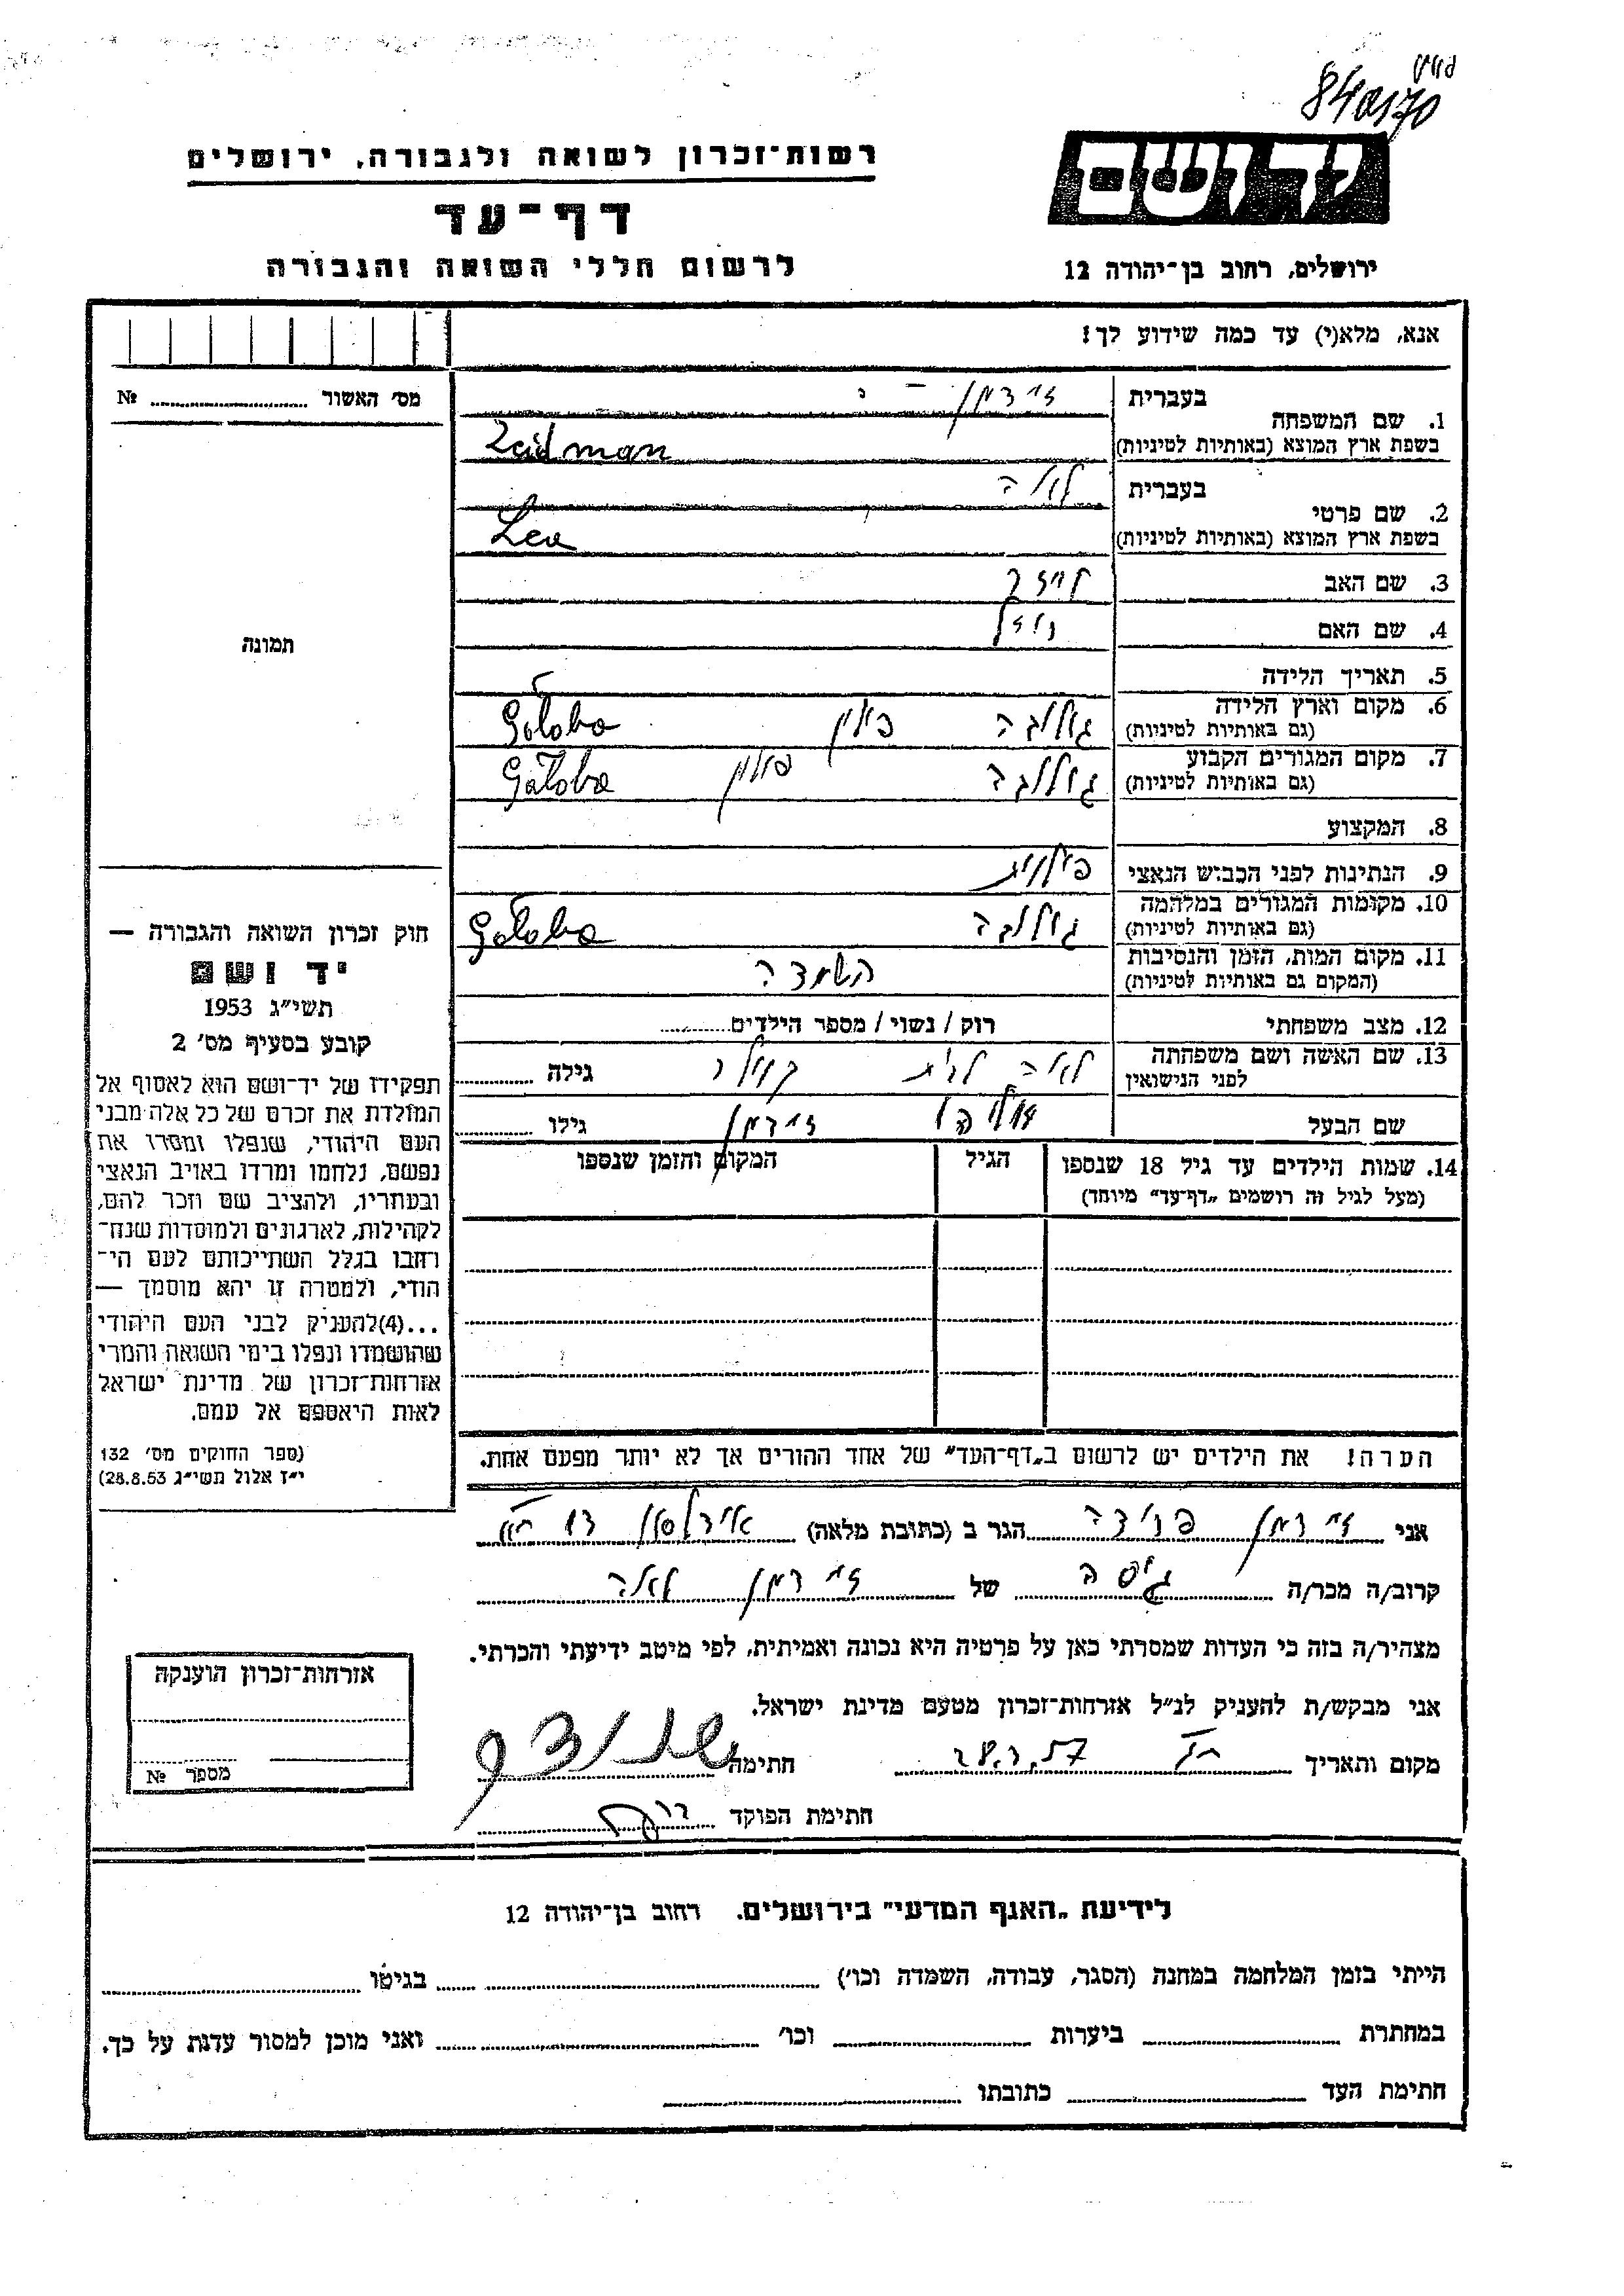 840170
יד ושם
רשות־זכרון לשואה ולגבורה, ירושלים
דף־עד
לרשום חללי השואה והגבורה
ירושלים, רחוב בן־יהודה 12
אנא, מלא(י) עד כמה שידוע לך!
מס' האשור № 
1. שם המשפחה
בעברית זידמן
בשפת ארץ המוצא (באותיות לטיניות) Zeidman
2. שם פרטי
בעברית לאה
בשפת ארץ המוצא (באותיות לטיניות) Lea
3. שם האב
4. שם האם
תמונה
5. תאריך הלידה
6. מקום וארץ הלידה
(גם באותיות לטיניות) פולין
7. מקום המגורים הקבוע
(גם באותיות לטיניות) פולין
8. המקצוע
9. הנתינות לפני הכבוש הנאצי פולנית
10. מקומות המגורים במלחמה
(גם באותיות לטיניות)
11. מקום המות, הזמן והנסיבות
(המקום גם באותיות לטיניות) השמדה
12. מצב משפחתי רוק / נשוי / מספר הילדים
13. שם האשה ושם משפחתה
לפני הנישואין לאה לבית גילה
שם הבעל זידמן גילו
14. שמות הילדים עד גיל 18 שנספו
(מעל לגיל זה רושמים „דף־עד" מיוחד)
הגיל
המקום והזמן שנספו
חוק זכרון השואה והגבורה —
יד ושם
תשי"ג 1953
קובע בסעיף מס' 2
תפקידו של יד־ושם הוא לאסוף אל
המולדת את זכרם של כל אלה מבני
העם היהודי, שנפלו ומסרו את
נפשם, נלחמו ומרדו באויב הנאצי
ובעוזריו, ולהציב שם וזכר להם,
לקהילות, לארגונים ולמוסדות שנח־
רבו בגלל השתייכותם לעם הי־
הודי, ולמטרה זו יהא מוסמך —
...(4)להעניק לבני העם היהודי
שהושמדו ונפלו בימי השואה והמרי
אזרחות־זכרון של מדינת ישראל
לאות היאספם אל עמם.
(ספר החוקים מס' 132
י"ז אלול תשי"ג 28.8.53)
הערה! את הילדים יש לרשום ב„דף־העד" של אחד ההורים אך לא יותר מפעם אחת.
אני זידמן הגר ב (כתובת מלאה)
קרוב/ה מכר/ה גיסה של זידמן לאה
מצהיר/ה בזה כי העדות שמסרתי כאן על פרטיה היא נכונה ואמיתית, לפי מיטב ידיעתי והכרתי.
אני מבקש/ת להעניק לנ"ל אזרחות־זכרון מטעם מדינת ישראל.
מקום ותאריך חתימה
חתימת הפוקד
אזרחות־זכרון הוענקה
מספר №
לידיעת „האגף המדעי" בירושלים. רחוב בן־יהודה 12
הייתי בזמן המלחמה במחנה (הסגר, עבודה, השמדה וכו') בגיטו
במחתרת ביערות וכו' ואני מוכן למסור עדות על כך.
חתימת העד כתובתו